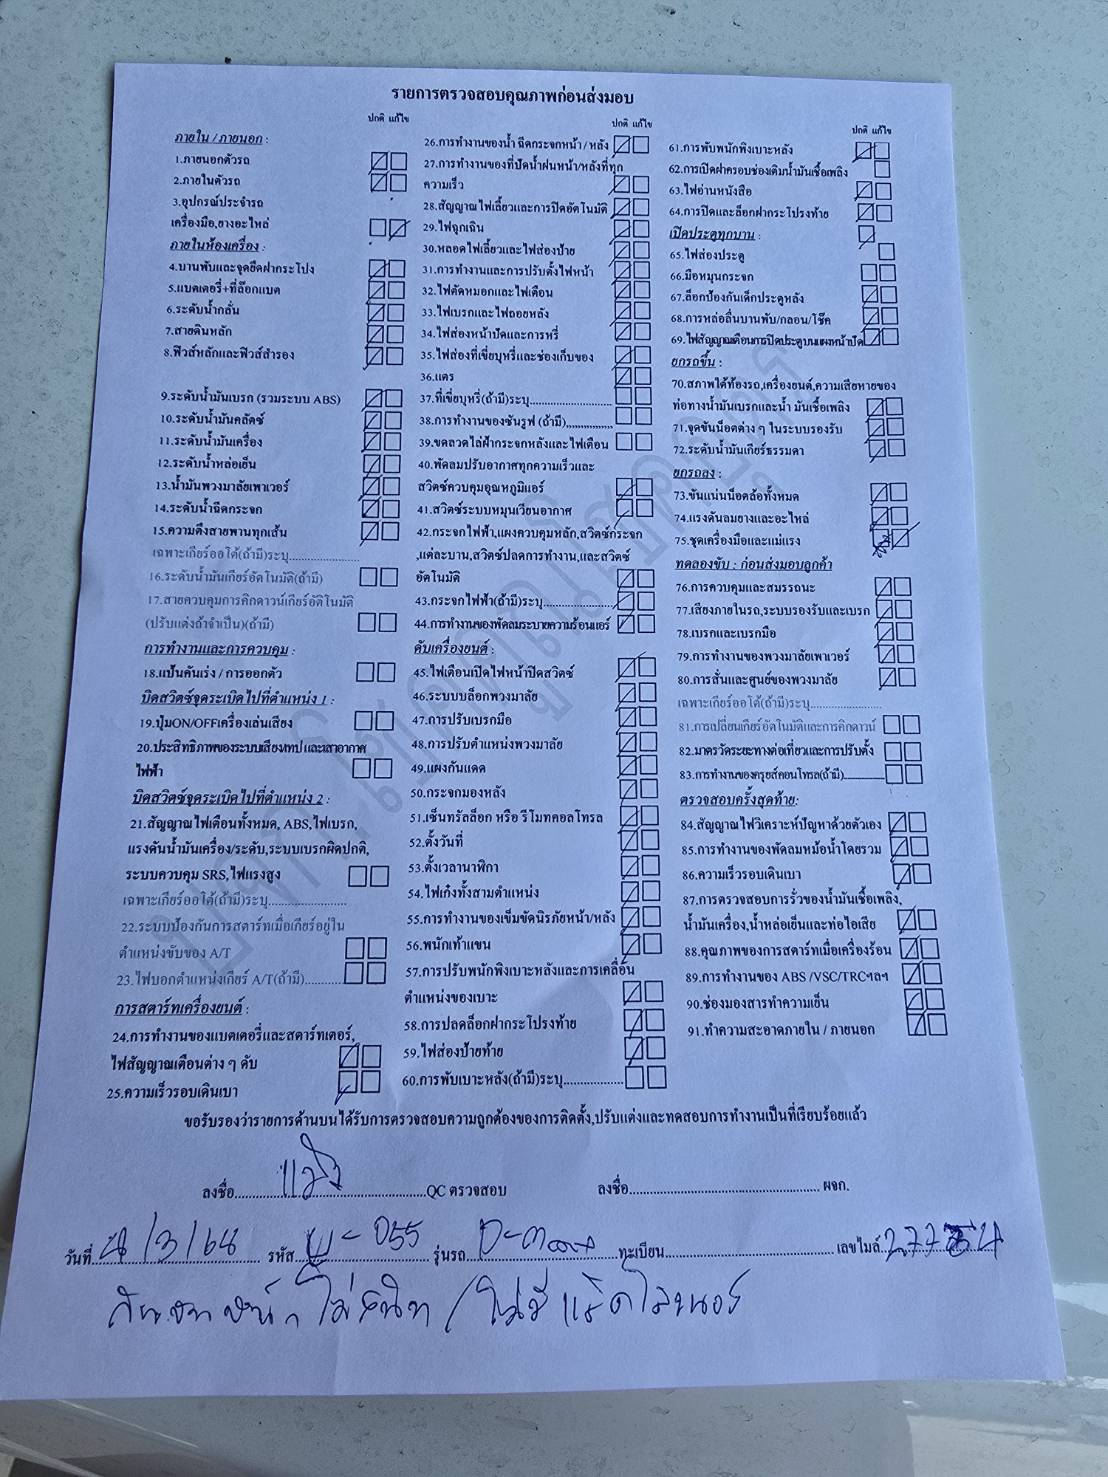 รายการตรวจสอบคุณภาพก่อนส่งมอบ
ปกติ แก้ไข
ภายใน / ภายนอก :
1.ภายนอกตัวรถ
2.ภายในตัวรถ
3.อุปกรณ์ประจำรถ
เครื่องมือ,ยางอะไหล่
ภายในห้องเครื่อง :
4.บานพับและจุดยึดฝากระโปง
5.แบตเตอรี่+ที่ล๊อกแบต
6.ระดับน้ำกลั่น
7.สายดินหลัก
8.ฟิวส์หลักและฟิวส์สำรอง
9.ระดับน้ำมันเบรก (รวมระบบ ABS)
10.ระดับน้ำมันคลัตซ์
11.ระดับน้ำมันเครื่อง
12.ระดับน้ำหล่อเย็น
13.น้ำมันพวงมาลัยเพาเวอร์
14.ระดับน้ำฉีดกระจก
15.ความตึงสายพานทุกเส้น
เฉพาะเกียร์ออโต้(ถ้ามี)ระบุ..................
16.ระดับน้ำมันเกียร์อัตโนมัติ(ถ้ามี)
17.สายควบคุมการคิกดาวน์เกียร์อัติโนมัติ
(ปรับแต่งถ้าจำเป็น)(ถ้ามี)
การทำงานและการควบคุม :
18.แป้นคันเร่ง / การออกตัว
บิดสวิตซ์จุดระเบิดไปที่ตำแหน่ง 1 :
19.ปุ่มON/OFFเครื่องเล่นเสียง
20.ประสิทธิภาพของระบบเสียงเทป และเสาอากาศ
ไฟฟ้า
บิดสวิตซ์จุดระเบิดไปที่ตำแหน่ง 2 :
21.สัญญาณไฟเตือนทั้งหมด, ABS,ไฟเบรก,
แรงดันน้ำมันเครื่อง/ระดับ,ระบบเบรกผิดปกติ,
ระบบควบคุม SRS,ไฟแรงสูง
เฉพาะเกียร์ออโต้(ถ้ามี)ระบุ....................
22.ระบบป้องกันการสตาร์ทเมื่อเกียร์อยู่ใน
ตำแหน่งขับของ A/T
23.ไฟบอกตำแหน่งเกียร์ A/T(ถ้ามี)..........
การสตาร์ทเครื่องยนต์ :
24.การทำงานของแบตเตอรี่และสตาร์ทเตอร์,
ไฟสัญญาณเตือนต่าง ๆ ดับ
25.ความเร็วรอบเดินเบา
ปกติ แก้ไข
26.การทำงานของน้ำ ฉีดกระจกหน้า / หลัง
27.การทำงานของที่ปัดน้ำฝนหน้า/หลังที่ทุก
ความเร็ว
28.สัญญาณไฟเลี้ยวและการปิดอัตโนมัติ
29.ไฟฉุกเฉิน
30.หลอดไฟเลี้ยวและไฟส่องป้าย
31.การทำงานและการปรับตั้งไฟหน้า
32.ไฟตัดหมอกและไฟเตือน
33.ไฟเบรกและไฟถอยหลัง
34.ไฟส่องหน้าปัดและการหรี่
35.ไฟส่องที่เขี่ยบุหรี่และช่องเก็บของ
36.แตร
37.ที่เขี่ยบุหรี่(ถ้ามี)ระบุ......................
38.การทำงานของซันรูฟ (ถ้ามี)................
39.ขดลวดไล่ฝ้ากระจกหลังและไฟเตือน
40.พัดลมปรับอากาศทุกความเร็วและ
สวิตซ์ควบคุมอุณหภูมิแอร์
41.สวิตซ์ระบบหมุนเวียนอากาศ
42.กระจกไฟฟ้า,แผงควบคุมหลัก,สวิตซ์กระจก
แต่ละบาน,สวิตซ์ปลดการทำงาน,และสวิตซ์
อัตโนมัติ
43.กระจกไฟฟ้า(ถ้ามี)ระบุ....................
44.การทำงานของพัดลมระบายความร้อนแอร์
ดับเครื่องยนต์ :
45.ไฟเตือนเปิดไฟหน้าปิดสวิตซ์
46.ระบบบล็อกพวงมาลัย
47.การปรับเบรกมือ
48.การปรับตำแหน่งพวงมาลัย
49.แผงกันแดด
50.กระจกมองหลัง
51.เซ็นทรัลล็อก หรือ รีโมทคอลโทรล
52.ตั้งวันที่
53.ตั้งเวลานาฬิกา
54.ไฟเก๋งทั้งสามตำแหน่ง
55.การทำงานของเข็มขัดนิรภัยหน้า/หลัง
56.พนักเท้าแขน
57.การปรับพนักพิงเบาะหลังและการเคลื่อน
ตำแหน่งของเบาะ
58.การปลดล็อกฝากระโปรงท้าย
59.ไฟส่องป้ายท้าย
60.การพับเบาะหลัง(ถ้ามี)ระบุ................
ปกติ แก้ไข
61.การพับพนักพิงเบาะหลัง
62.การเปิดฝาครอบช่องเติมน้ำมันเชื้อเพลิง
63.ไฟอ่านหนังสือ
64.การปิดและล็อกฝากระโปรงท้าย
เปิดประตูทุกบาน :
65.ไฟส่องประตู
66.มือหมุนกระจก
67.ล็อกป้องกันเด็กประตูหลัง
68.การหล่อลื่นบานพับ/กลอน/โช๊ค
69.ไฟสัญญาณเตือนการปิดประตูบนแผงหน้าปัด
ยกรถขึ้น :
70.สภาพใต้ท้องรถ,เครื่องยนต์,ความเสียหายของ
ท่อทางน้ำมันเบรกและน้ำ มันเชื้อเพลิง
71.จุดขันน็อตต่าง ๆ ในระบบรองรับ
72.ระดับน้ำมันเกียร์ธรรมดา
ยกรถลง :
73.ขันแน่นน็อตล้อทั้งหมด
74.แรงดันลมยางและอะไหล่
75.ชุดเครื่องมือและแม่แรง
ทดลองขับ : ก่อนส่งมอบลูกค้า
76.การควบคุมและสมรรถนะ
77.เสียงภายในรถ,ระบบรองรับและเบรก
78.เบรกและเบรกมือ
79.การทำงานของพวงมาลัยเพาเวอร์
80.การสั่นและศูนย์ของพวงมาลัย
เฉพาะเกียร์ออโต้(ถ้ามี)ระบุ....................
81.การเปลี่ยนเกียร์อัตโนมัติและการคิกดาวน์
82.มาตรวัดระยะทางต่อเที่ยวและการปรับตั้ง
83.การทำงานของครูยส์คอนโทรล(ถ้ามี)............
ตรวจสอบครั้งสุดท้าย:
84.สัญญาณไฟวิเคราะห์ปัญหาด้วยตัวเอง
85.การทำงานของพัดลมหม้อน้ำโดยรวม
86.ความเร็วรอบเดินเบา
87.การตรวจสอบการรั่วของน้ำมันเชื้อเพลิง,
น้ำมันเครื่อง,น้ำหล่อเย็นและท่อไอเสีย
88.คุณภาพของการสตาร์ทเมื่อเครื่องร้อน
89.การทำงานของ ABS /VSC/TRCฯลฯ
90.ช่องมองสารทำความเย็น
91.ทำความสะอาดภายใน / ภายนอก
ขอรับรองว่ารายการด้านบนได้รับการตรวจสอบความถูกต้องของการติดตั้ง,ปรับแต่งและทดสอบการทำงานเป็นที่เรียบร้อยแล้ว
ลงชื่อ..............................QC ตรวจสอบ ลงชื่อ.............................. ผจก.
วันที่ /3/68 รหัส - 055 รุ่นรถ D-max ทะเบียน.............................. เลขไมล์
ไม่สนิท / ไม่มี